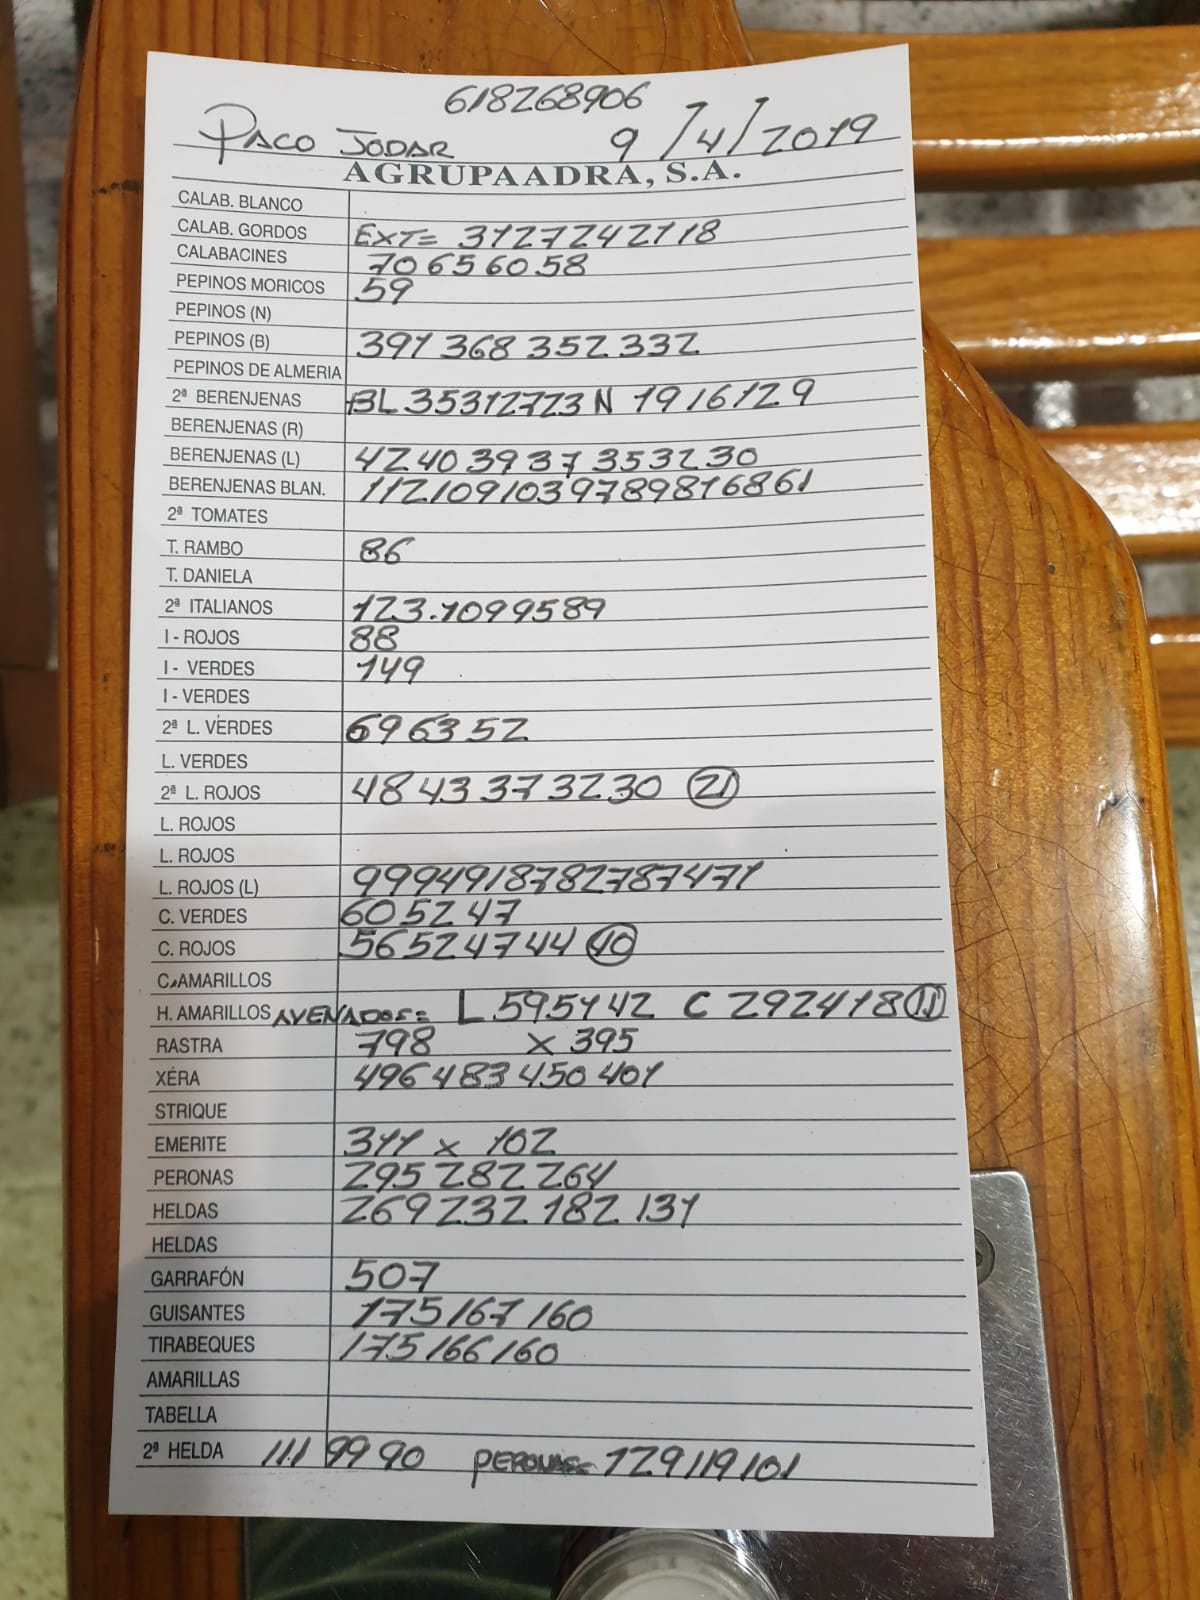 618268906
PACO JODAR 9/4/2019
AGRUPAADRA, S.A.
CALAB. BLANCO
CALAB. GORDOS EXT= 3127242118
CALABACINES 70656058
PEPINOS MORICOS 59
PEPINOS (N)
PEPINOS (B) 391 368 352 332
PEPINOS DE ALMERIA
2ª BERENJENAS BL 35312723 N 1916129
BERENJENAS (R)
BERENJENAS (L) 42403937353230
BERENJENAS BLAN. 1121091039789816861
2ª TOMATES
T. RAMBO 86
T. DANIELA
2ª ITALIANOS 123.1099589
I - ROJOS 88
I - VERDES 149
I - VERDES
2ª L. VERDES 696352
L. VERDES
2ª L. ROJOS 4843373230 21
L. ROJOS
L. ROJOS
L. ROJOS (L) 9994918782787471
C. VERDES 605247
C. ROJOS 5652474440
C. AMARILLOS
H. AMARILLOS AVENADOS= L 595142 C 29241811
RASTRA 798 x 395
XÉRA 496 483 450 401
STRIQUE
EMERITE 311 x 102
PERONAS 295 282 264
HELDAS 269 232 182 131
HELDAS
GARRAFÓN 507
GUISANTES 175 167 160
TIRABEQUES 175 166 160
AMARILLAS
TABELLA
2ª HELDA 111 99 90 PERONAS= 129 119 101